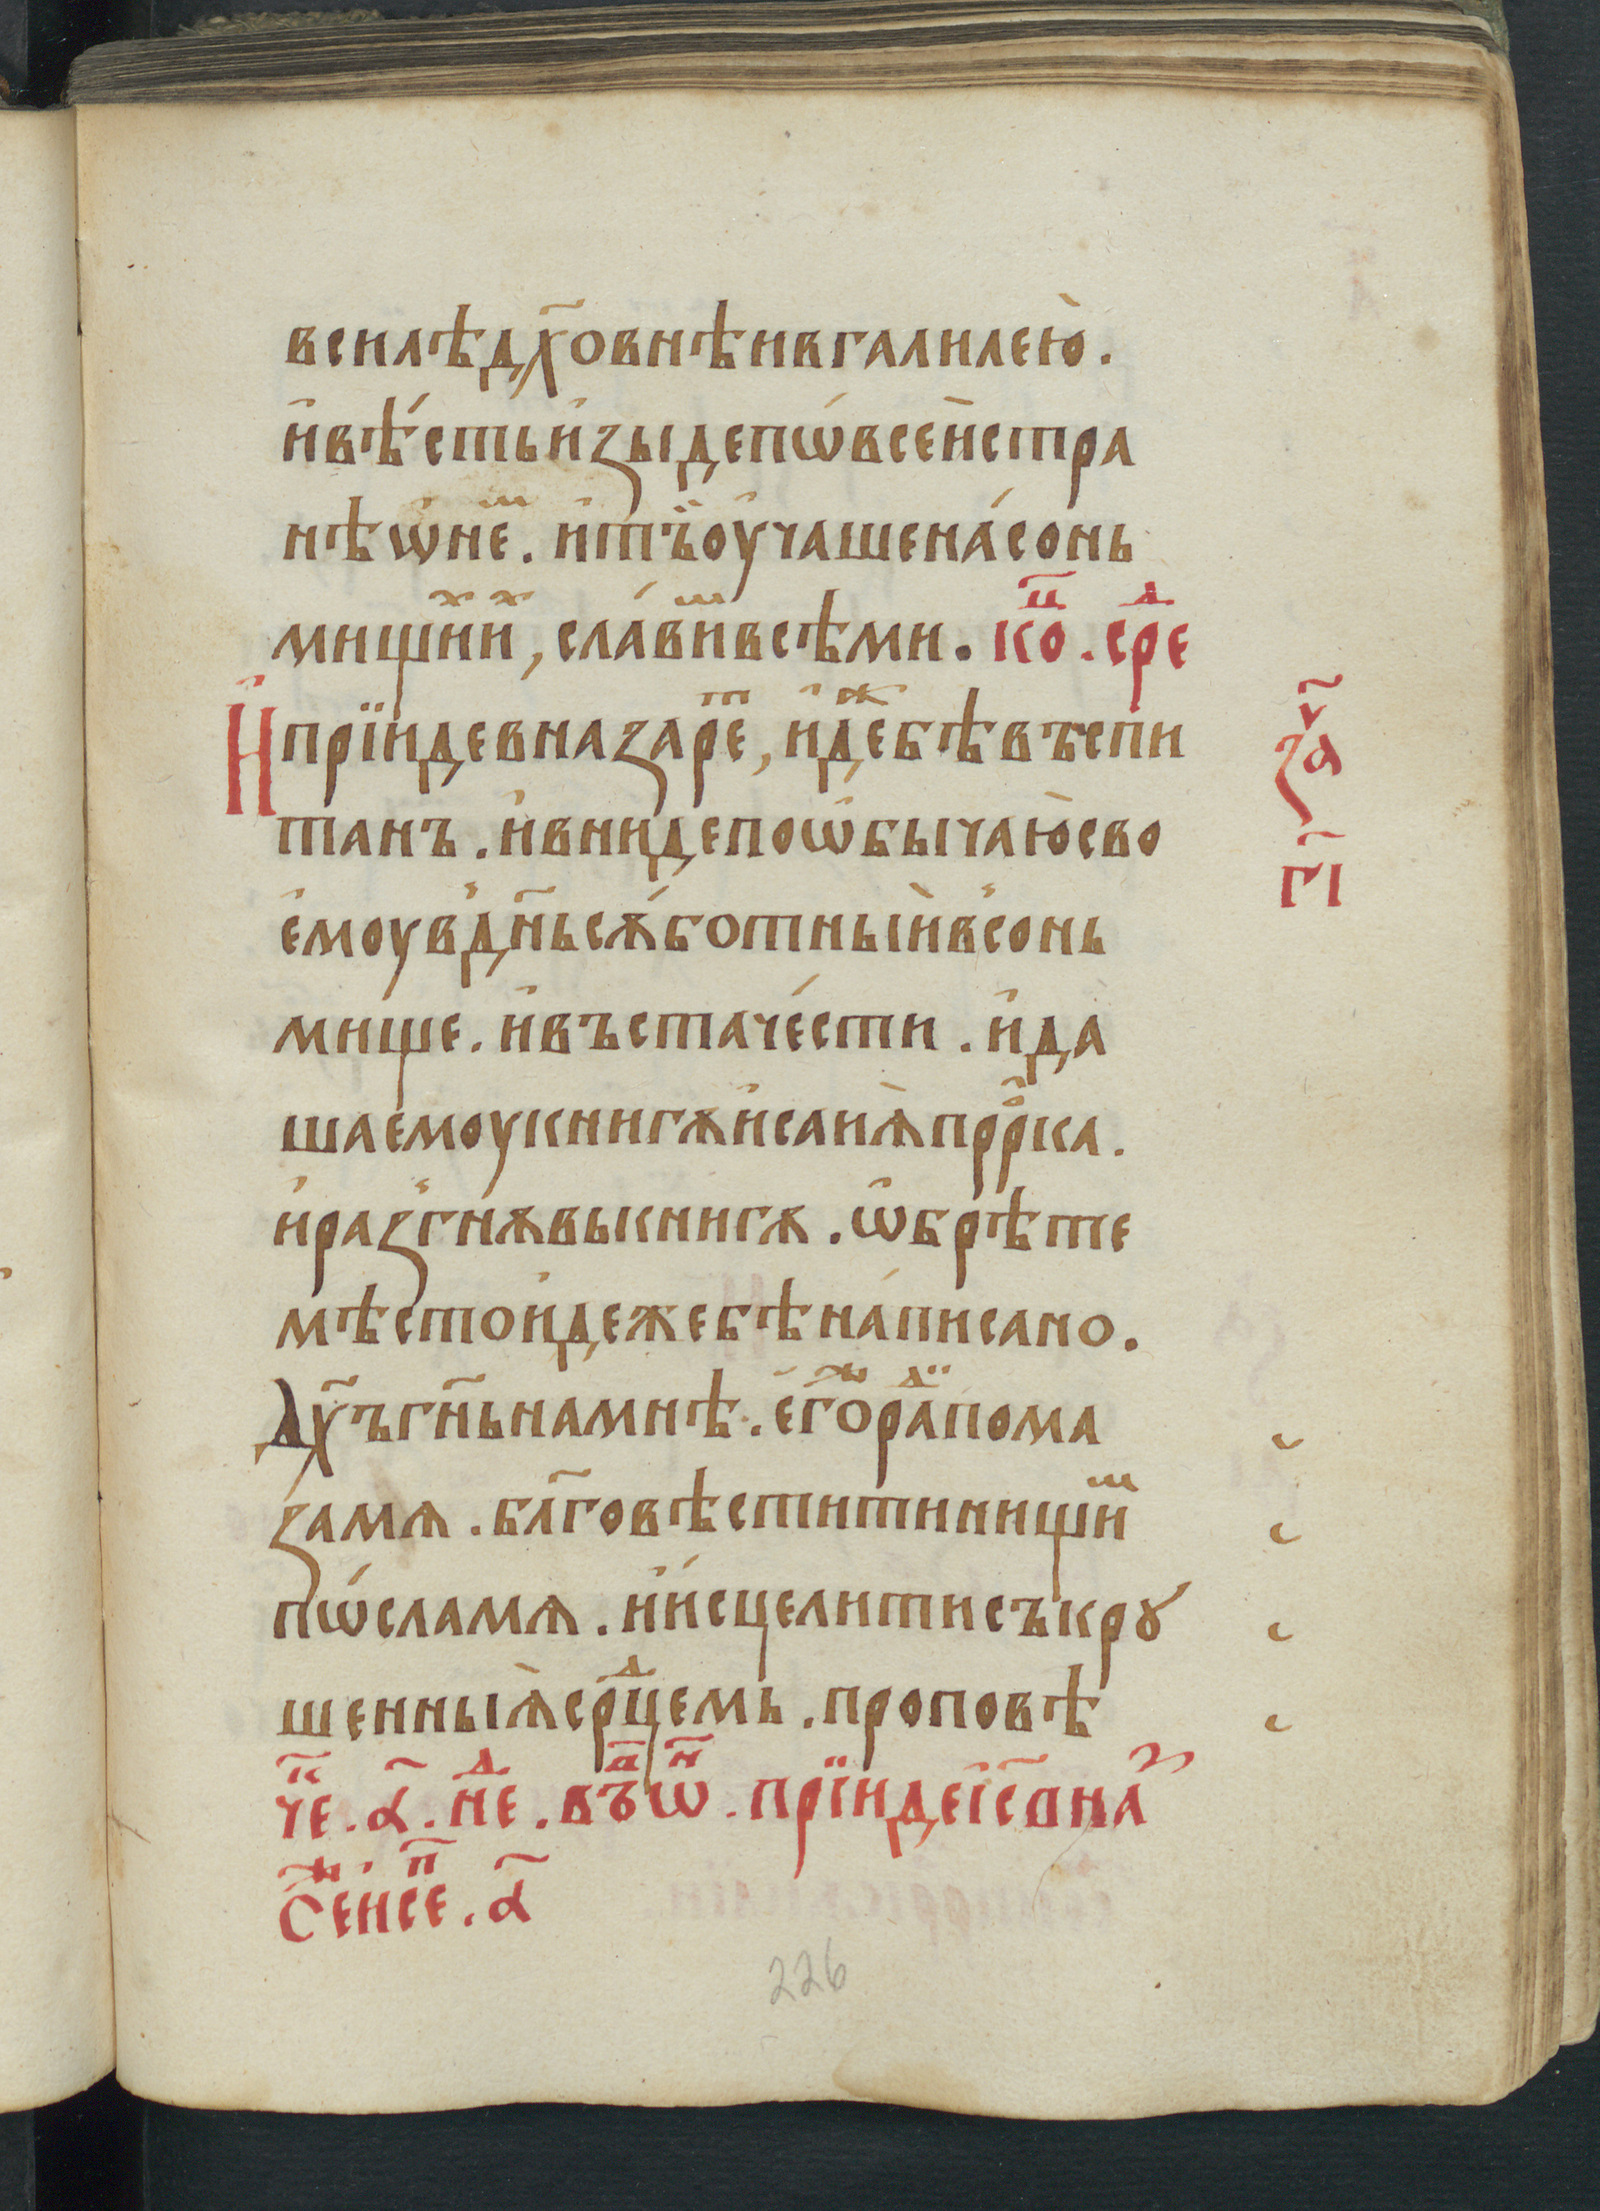 всилѣдх҃овнѣивгалилею̀.
и҆вѣ́стьи҆зыдепѡ́всеѝстра
нѣѡ҆не̑ⷨ. и҆т꙼ъоу҆чашена́сонь
мищиⷯиⷯ, сла́виⷨвсѣми. коⷰ҇. среⷣ
И҆прїидевназареⷮ, и҆деⷤбѣвъспи
танъ. и҆вниидепоѡ҆бычаю̀сво
е҆моув꙽дн҃ьсѫ́ботныѝв꙽сонь
мище. и҆въстаче́сти. и҆да
шаемоукнигѫи҆саиѧ̀прⷪ҇рка.
и҆раз꙽гнѫ́выкнигѫ. ѡ҆брѣ́те
мѣстои҆дежебѣна́писано.
Дх҃ъгн҃ьнамнѣ. е҆гоⷤраⷣпома
замѧ. бл҃говѣститинищиⷨ
пѡ́сламѧ. и҆и́сцелитисъкрꙋ́
шенныѧ̀срⷣцемь. проповѣ
чеⷦ҇. а҃. неⷣ. въⷩ҇ѡ҃ⷩ. прїидеіс҃вна́ⷥ
Сеⷤи҆сеⷫ҇. а҃
за҃ⱽ
г҃і
226